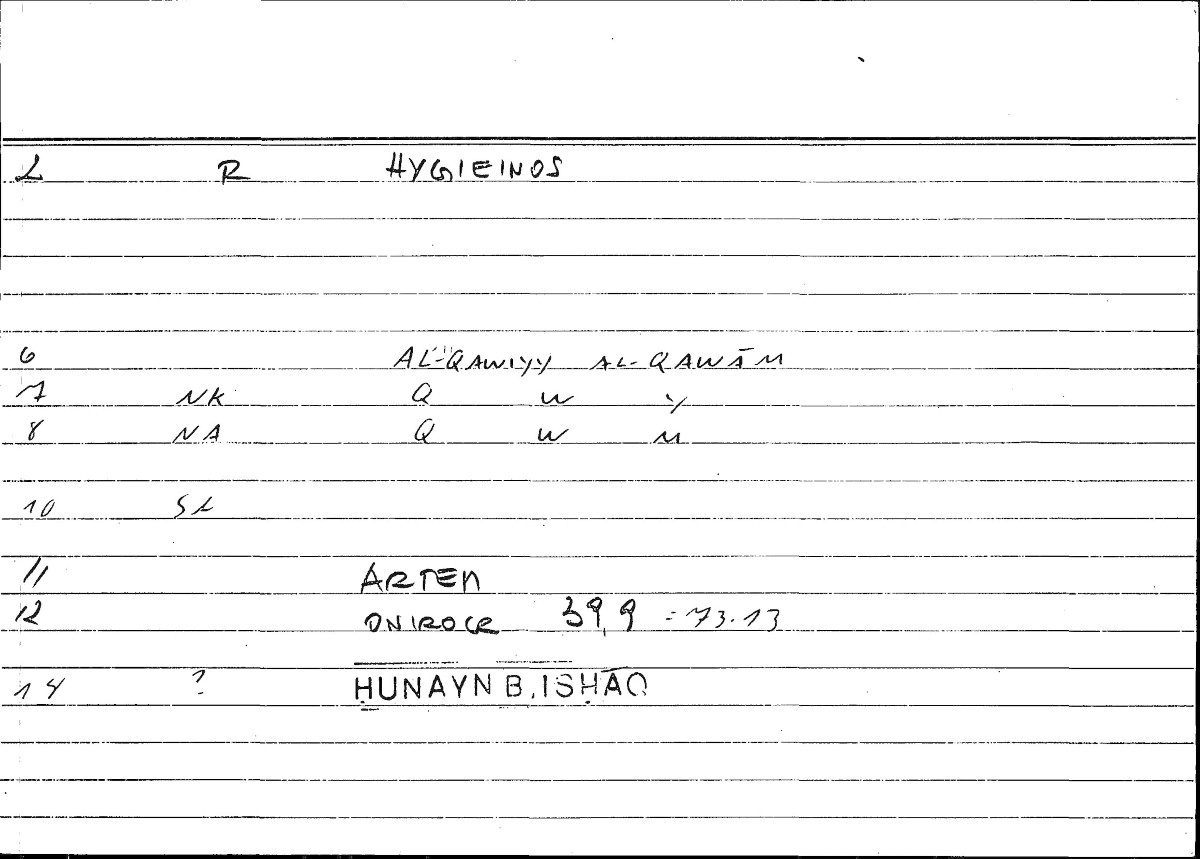 2 R HYGIEINOS
6 AL-QAWIYY AL-QAWĀM
7 NK Q W Y
8 NA Q W M
10 SL
11 ARTEM
12 ONIROCR 39,9 = 73.13
14 ? ḤUNAYN B. ISḤĀQ